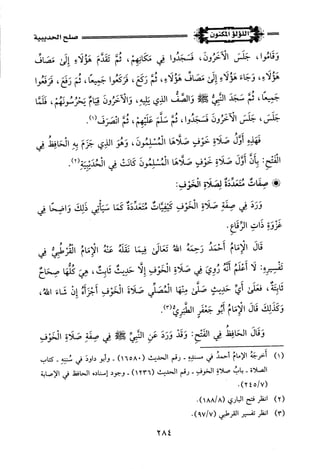 صلح الحديبية
اللؤلؤ المكنون
وَقَامُوا، جَلَسَ الْآخَرُونَ، فَسَجَدُوا فِي مَكَانِهِمْ، ثُمَّ تَقَدَّمَ هَؤُلَاءِ إِلَى مَصَافِّ
هَؤُلَاءِ، وَجَاءَ هَؤُلَاءِ إِلَى مَصَافِّ هَؤُلَاءِ، ثُمَّ رَكَعَ، فَرَكَعُوا جَمِيعًا، ثُمَّ رَفَعَ، فَرَفَعُوا
جَمِيعًا، ثُمَّ سَجَدَ النَّبِيُّ ﷺ وَالصَّفُّ الذِي يَلِيهِ، وَالْآخَرُونَ قِيَامٌ يَحْرُسُونَهُمْ، فَلَمَّا
جَلَسَ، جَلَسَ الْآخَرُونَ فَسَجَدُوا، ثُمَّ سَلَّمَ عَلَيْهِمْ، ثُمَّ انْصَرَفَ(١).
فَهَذِهِ أَوَّلُ صَلَاةِ خَوْفٍ صَلَّاهَا الْمُسْلِمُونَ، وَهُوَ الذِي جَزَمَ بِهِ الْحَافِظُ فِي
الْفَتْحِ: بِأَنَّ أَوَّلَ صَلَاةِ خَوْفٍ صَلَّاهَا الْمُسْلِمُونَ كَانَتْ فِي الْحُدَيْبِيَةِ(٢).
❋ صِفَاتٌ مُتَعَدِّدَةٌ لِصَلَاةِ الْخَوْفِ:
وَرَدَ فِي صِفَةِ صَلَاةِ الْخَوْفِ كَيْفِيَّاتٌ مُتَعَدِّدَةٌ كَمَا سَيَأْتِي ذَلِكَ وَاضِحًا فِي
غَزْوَةِ ذَاتِ الرِّقَاعِ.
قَالَ الْإِمَامُ أَحْمَدُ رَحِمَهُ اللهُ تَعَالَى فِيمَا نَقَلَهُ عَنْهُ الْإِمَامُ الْقُرْطُبِيُّ فِي
تَفْسِيرِهِ: لَا أَعْلَمُ أَنَّهُ رُوِيَ فِي صَلَاةِ الْخَوْفِ إِلَّا حَدِيثٌ ثَابِتٌ، هِيَ كُلُّهَا صِحَاحٌ
ثَابِتَةٌ، فَعَلَى أَيِّ حَدِيثٍ صَلَّى مِنْهَا الْمُصَلِّي صَلَاةَ الْخَوْفِ أَجْزَأَهُ إِنْ شَاءَ اللهُ،
وَكَذَلِكَ قَالَ الْإِمَامُ أَبُو جَعْفَرٍ الطَّبَرِيُّ(٣).
وَقَالَ الْحَافِظُ فِي الْفَتْحِ: وَقَدْ وَرَدَ عَنِ النَّبِيِّ ﷺ فِي صِفَةِ صَلَاةِ الْخَوْفِ
(١) أخرجه الإمام أحمد في مسنده - رقم الحديث (١٦٥٨٠) - وأبو داود في سننه - كتاب
الصلاة - باب صلاة الخوف - رقم الحديث (١٢٣٦) - وجود إسناده الحافظ في الإصابة
(٢٤٥/٧).
(٢) انظر فتح الباري (١٨٨/٨).
(٣) انظر تفسير القرطبي (٩٧/٧).
٢٨٤